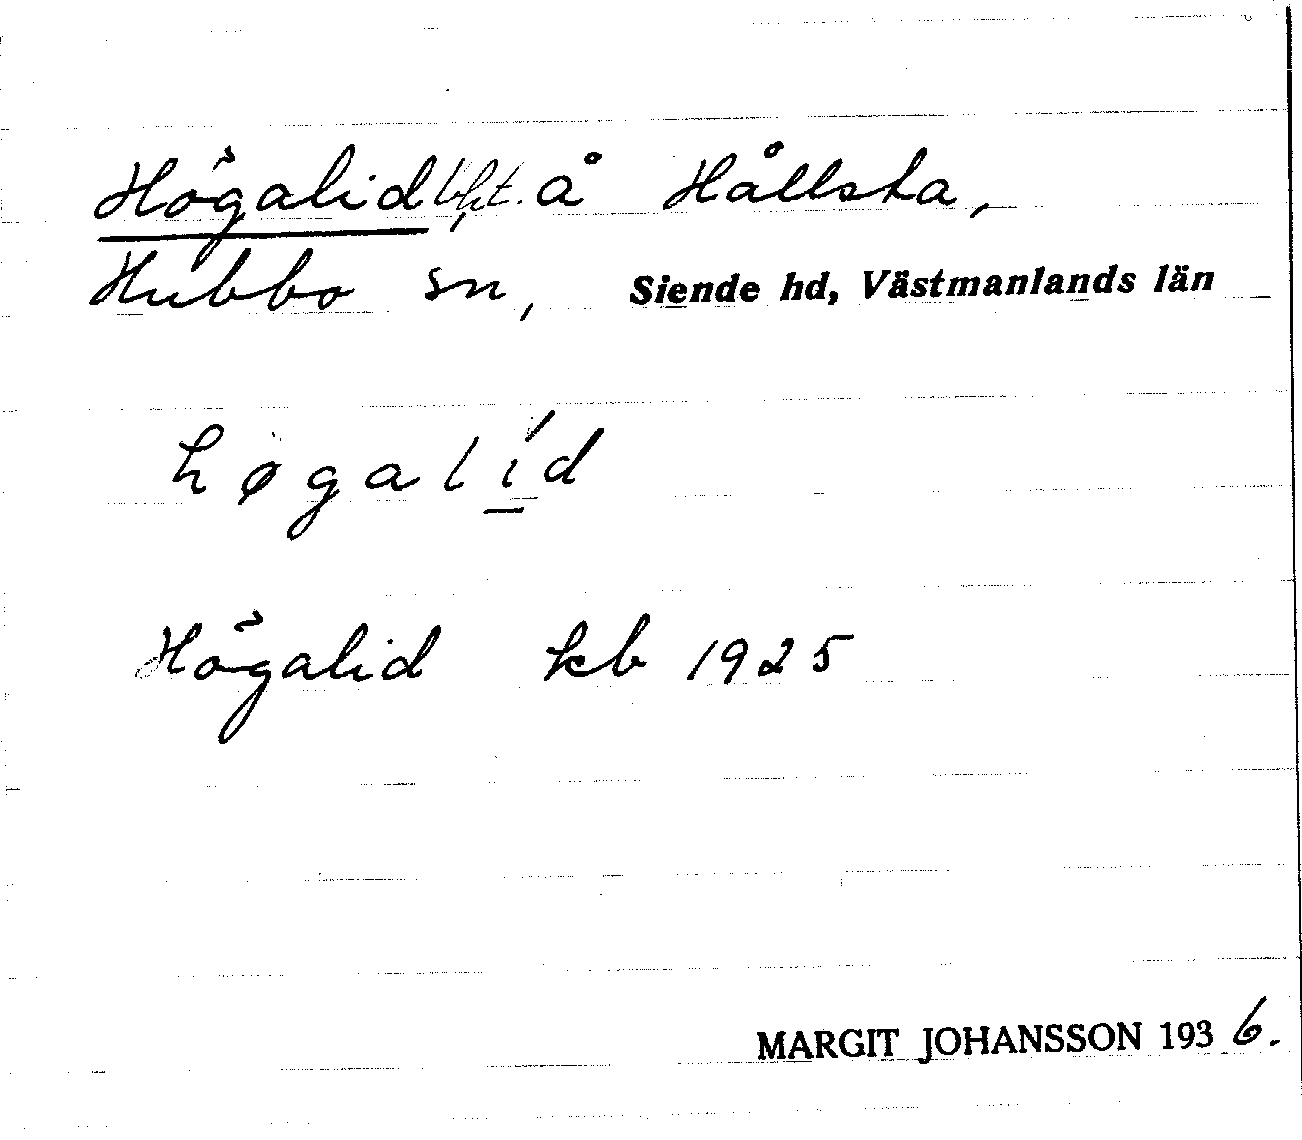 Högalid lht. å Hållsta,
Hubbo sn, Siende hd, Västmanlands län
høgalíd
Högalid kb 1925
MARGIT JOHANSSON 1936.